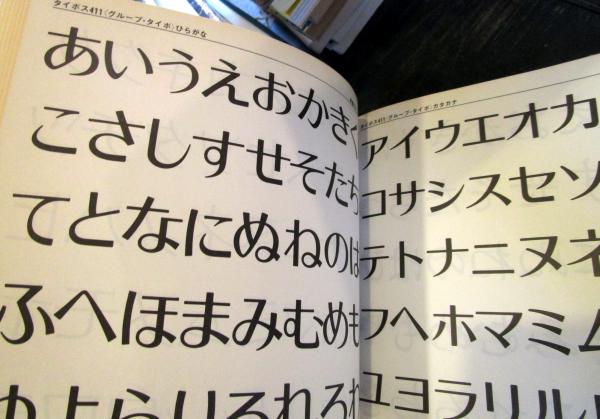 タイポス411〈グループ・タイポ〉ひらがな
あいうえおかきく
こさしすせそたち
てとなにぬねのは
ふへほまみむめも
ゆよらりるれろわ
タイポス411〈グループ・タイポ〉カタカナ
アイウエオカ
コサシスセソ
テトナニヌネ
フヘホマミム
ユヨラリル